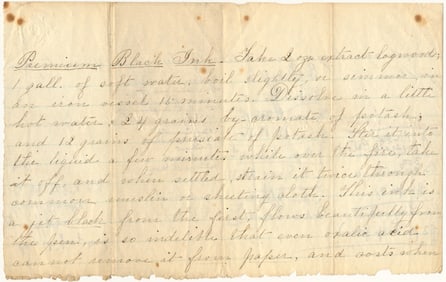 Premium Black Ink. Take 2 ozs extract logwood,
1 gall. of soft water. boil slightly, or simmer, in
an iron vessel 15 minutes. Dissolve in a little
hot water: 24 grains by-cromate of potash,
and 12 grains of prussiate of potash. Stir it into
the liquid a few minutes while over the fire, take
it off, and when settled, strain it twice through
common muslin or sheeting cloth. This ink is
a jet black from the first, flows beautifully from
the pen, is so indelible that even oxalic acid
cannot remove it from paper, and costs when